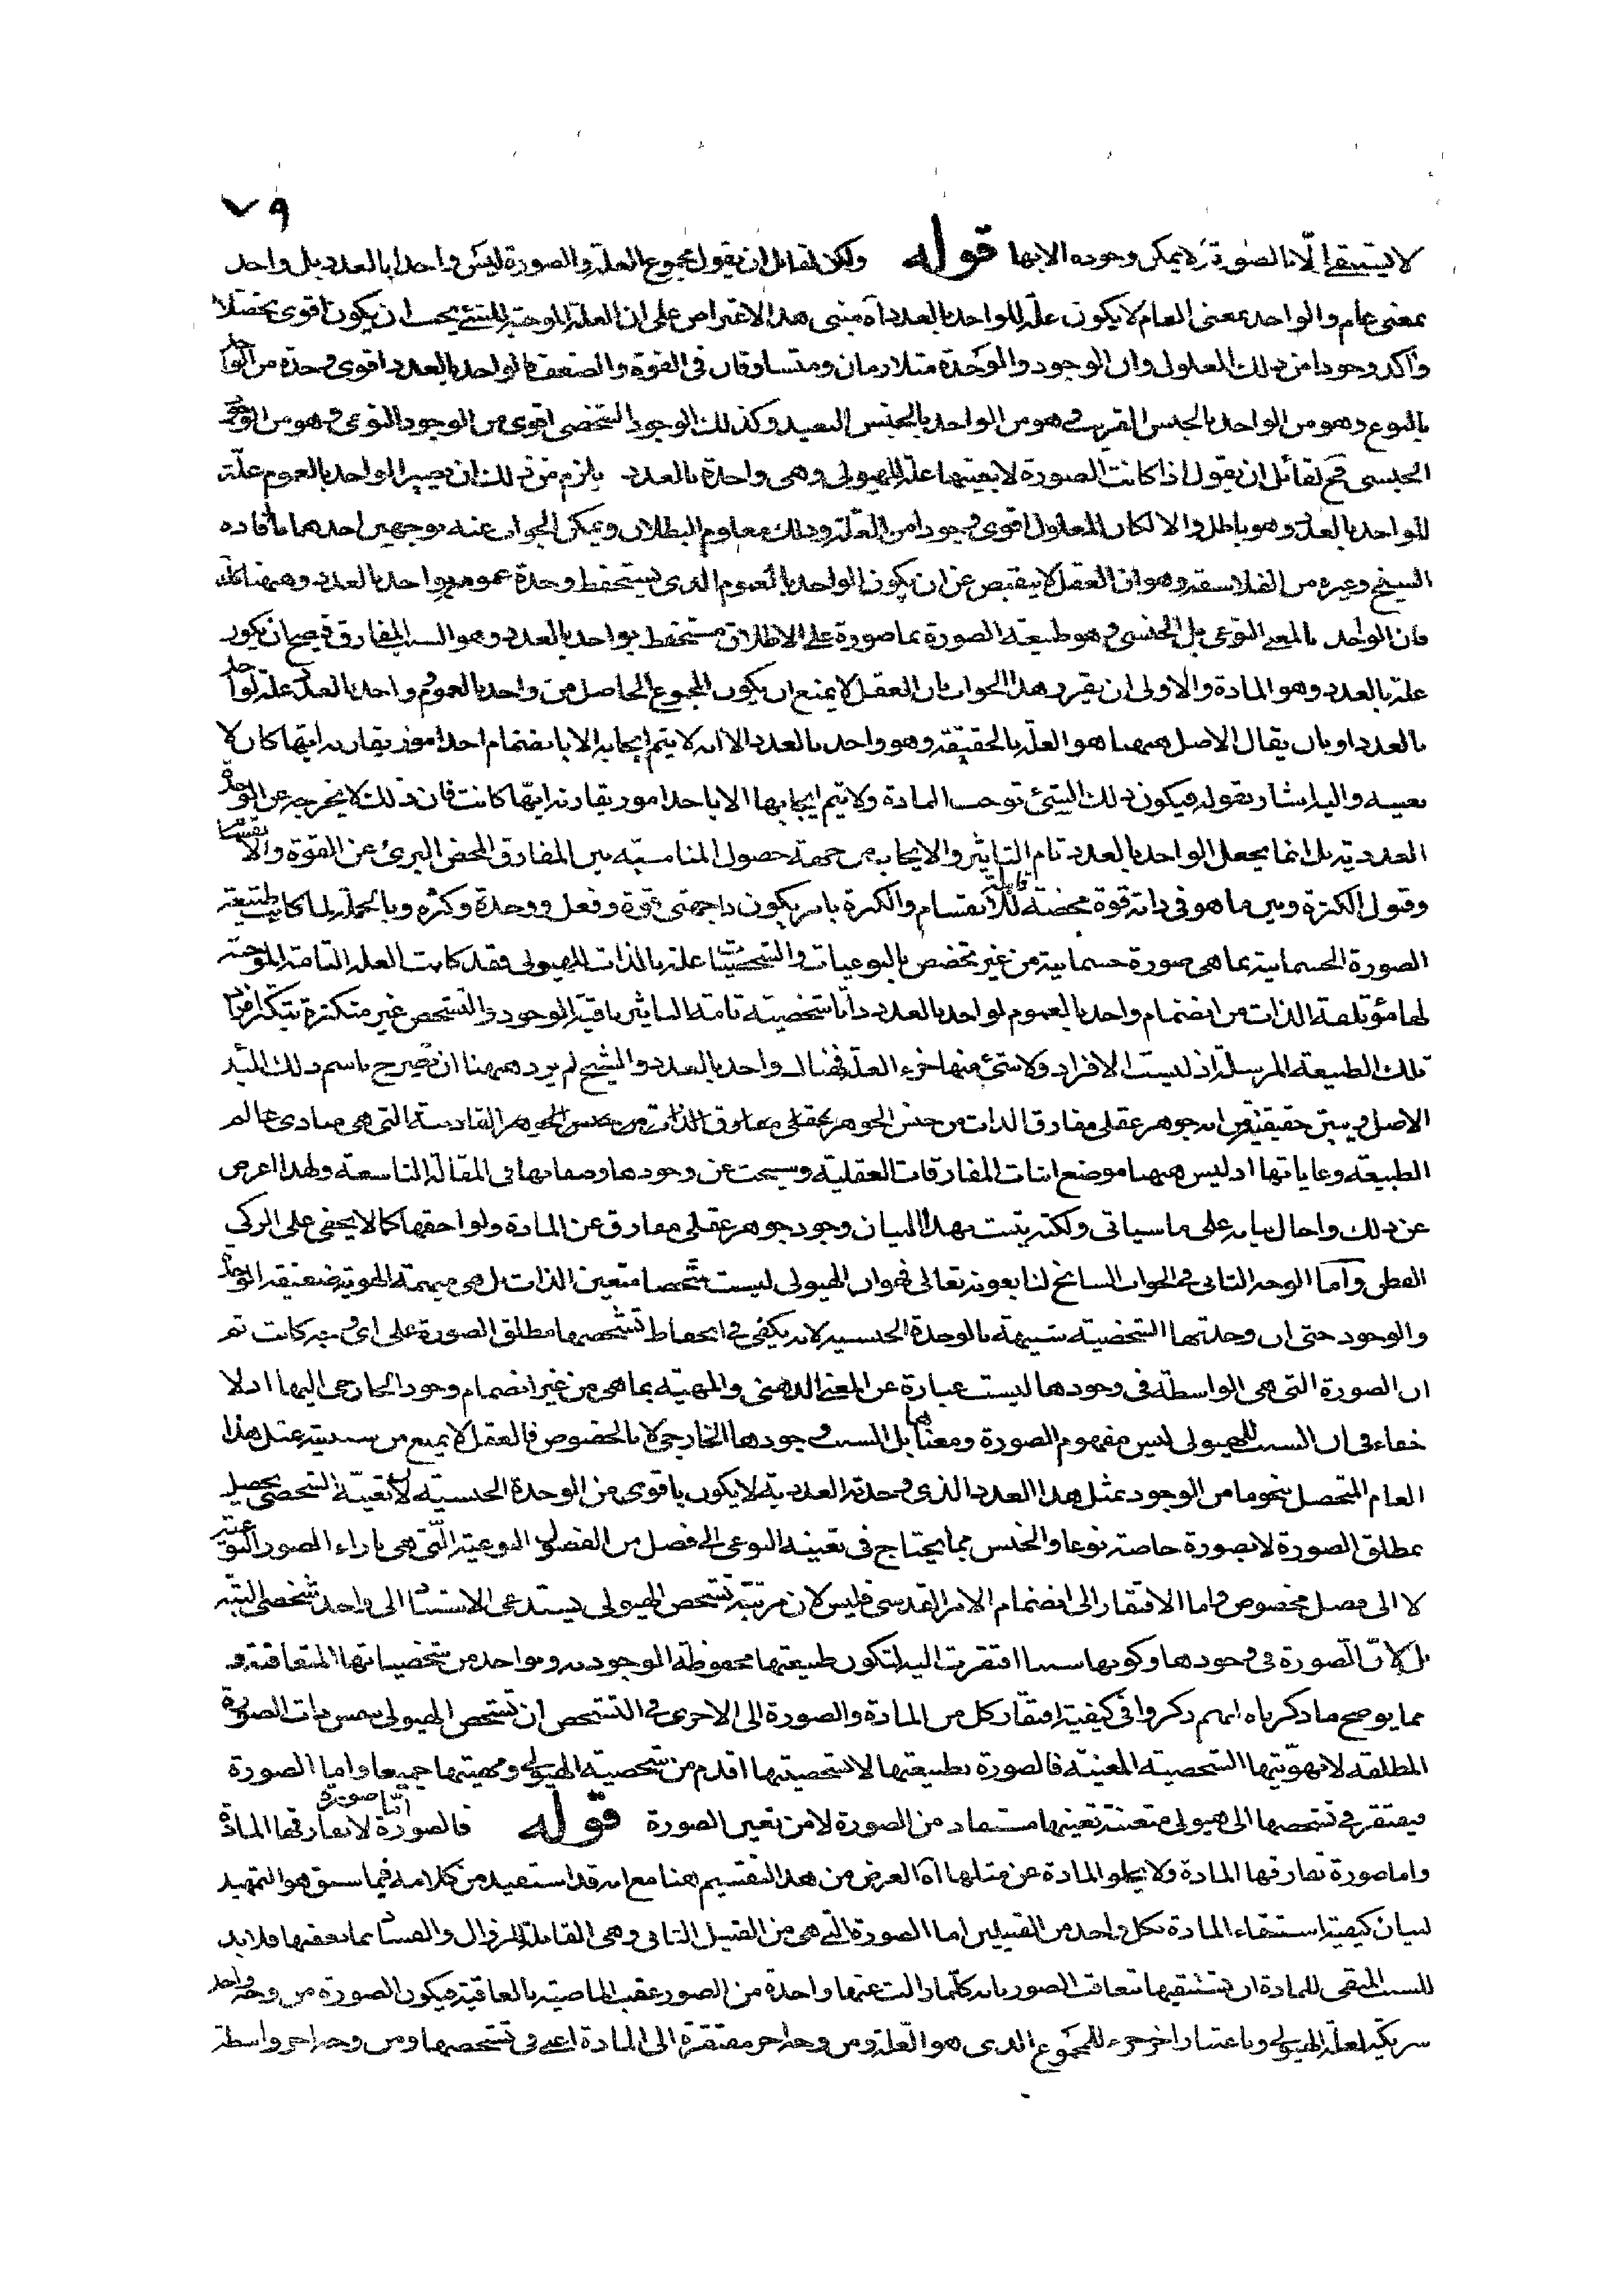 ٧٩
لا يستبقى إلا بالصورة لا يمكن وجوده الا بها قوله ولكن لقائل ان يقول مجموع العلة والصورة ليس واحدا بالعدد بل واحد
بمعنى عام والواحد بمعنى العام لا يكون علة للواحد بالعدد آه مبنى هذا الاعتراض على ان العلة الموجبة للشئ يجب ان يكون اقوى تحصلا
وآكد وجودا من ذلك المعلول وان الوجود والوحدة متلازمان ومتساوقان في القوة والضعف فالواحد بالعدد اقوى وحدة من الواحد
بالنوع وهو من الواحد بالجنس القريب وهو من الواحد بالجنس البعيد وكذلك الوجود الشخصى اقوى من الوجود النوعى وهو من الوجود
الجنسى فح لقائل ان يقول اذا كانت الصورة لا بعينها علة للهيولى وهى واحدة بالعدد يلزم من ذلك ان يصير الواحد بالعموم علة
للواحد بالعدد وهو باطل والا لكان المعلول اقوى وجودا من العلة وذلك معلوم البطلان ويمكن الجواب عنه بوجهين احدهما ما أفاده
الشيخ وغيره من الفلاسفة وهو ان العقل لا ينقبض عن ان يكون الواحد بالعموم الذى يستحفظ وحدة عمومه بواحد بالعدد وههنا كذلك
فان الواحد بالمعنى النوعى بل الجنسى وهو طبيعة الصورة بما صورة على الاطلاق مستحفظ بواحد بالعدد وهو السبب المفارق فيصح ان يكون
علة بالعدد وهو المادة والاولى ان يقرر هذا الجواب بان العقل لا يمنع ان يكون المجموع الحاصل من واحد بالعموم وواحد بالعدد علة لواحد
بالعدد او بان يقال الاصل ههنا هو العلة بالحقيقة وهو واحد بالعدد الا انه لا يتم ايجابه الا بانضمام احد امور يقارنه ايتها كان لا
بعينه واليه اشار بقوله فيكون ذلك الشئ توجب المادة ولا يتم ايجابها الا باحد امور يقارنه ايتها كانت فان ذلك لا يخرجه عن الوحدة
العددية بل انما يجعل الواحد بالعدد تام التاثير والايجاب من جهة حصول المناسبة بين المفارق المحض البرئ عن القوة والانقسام
وقبول الكثرة وبين ما هو في ذاته قوة محضة قابلة للانقسام والكثرة بامر يكون ذا جهتى قوة وفعل ووحدة وكثرة وبالجملة لما كانت طبيعة
الصورة الجسمانية بما هى صورة جسمانية من غير تخصص بالنوعيات والشخصيات علة بالذات للهيولى فقد كانت العلة التامة الموجبة
لها مؤتلفة الذات من انضمام واحد بالعموم لواحد بالعدد ذاتا شخصية تامة التاثير باقية الوجود والتشخص غير متكثرة بتكثر افراد
تلك الطبيعة المرسلة اذ ليست الافراد ولا شئ منها جزء العلة فهناك واحد بالعدد والشيخ لم يرد ههنا ان يصرح باسم ذلك الشئ
الاصل ويبين حقيقته من انه جوهر عقلى مفارق الذات من جنس الجوهر القادسة التى هى مبادى عالم
الطبيعة وغاياتها اذ ليس ههنا موضع اثبات المفارقات العقلية وسيبحث عن وجودها وصفاتها في المقالة التاسعة ولهذا اعرض
عن ذلك واحال بيانه على ما سياتى ولكنه يثبت بهذا البيان وجود جوهر عقلى مفارق عن المادة ولواحقها كما لا يخفى على الزكى
الفطن وأما الوجه الثانى في الجواب السانح لنا بعونه تعالى فهو ان الهيولى ليست شخصا متعين الذات بل هى مبهمة الهوية ضعيفة الوحدة
والوجود حتى ان وحدتها الشخصية شبيهة بالوحدة الجنسية لانه يكفى في انحفاظ تشخصها مطلق الصورة على اى وجه كانت ثم
ان الصورة التى هى الواسطة في وجودها ليست عبارة عن المعنى الذهنى والمهية بما هى من غير انضمام وجود الخارجى اليها اذ لا
خفاء في ان السبب للهيولى ليس مفهوم الصورة ومعناها بل السبب وجودها الخارجى لا بالخصوص فالعقل لا يمنع من سببية مثل هذا
العام المتحصل نحوا ما من الوجود بمثل هذا العدد الذى وحدته العددية لا يكون باقوى من الوحدة الجنسية لان تعينه الشخصى يحصل
بمطلق الصورة لا بصورة خاصة نوعا والجنس مما يحتاج في تعينه النوعى الى فصل من الفصول النوعية التى هى بازاء الصور النوعية
لا الى فصل مخصوص واما الافتقار الى انضمام الامر القدسى فليس لان مرتبة تشخص الهيولى يستدعى الاستناد الى واحد شخصى البتة
بل لان الصورة في وجودها وكونها سببا افتقرت اليه لتكون طبيعتها محفوظة الوجود به وبواحد من شخصياتها المتعاقبة و
مما يوضح ما ذكرناه انهم ذكروا في كيفية افتقار كل من المادة والصورة الى الاخرى في التشخص ان تشخص الهيولى بنفس ذات الصورة
المطلقة لا بهويتها الشخصية المعينة فالصورة بطبيعتها لا بشخصيتها اقدم من شخصية الهيولى ومهيتها جميعا واما الصورة
فيفتقر في تشخصها الى هيولى متعينة تعينها مستفاد من الصورة لا من تعين الصورة قوله فالصورة اما صورة لا تفارقها المادة
واما صورة تفارقها المادة ولا يخلو المادة عن مثلها آه الغرض من هذا التقسيم هنا مع انه قد استفيد من كلامه فيما سبق هو التمهيد
لبيان كيفية استبقاء المادة بكل واحد من القبيلين اما الصورة التى هى من القبيل الثانى وهى القابلة للزوال والفساد بما يعقبها فلابد
للسبب المبقى للمادة ان يستبقيها بتعاقب الصور بانه كلما زالت عنها واحدة من الصور عقب الماضية بالعاقبة فيكون الصورة من وجه واحد
شريكة لعلة الهيولى وباعتبار اخر جزء للمجموع الذى هو العلة ومن وجه اخر مفتقرة الى المادة اعنى في تشخصها ومن وجه اخر واسطة